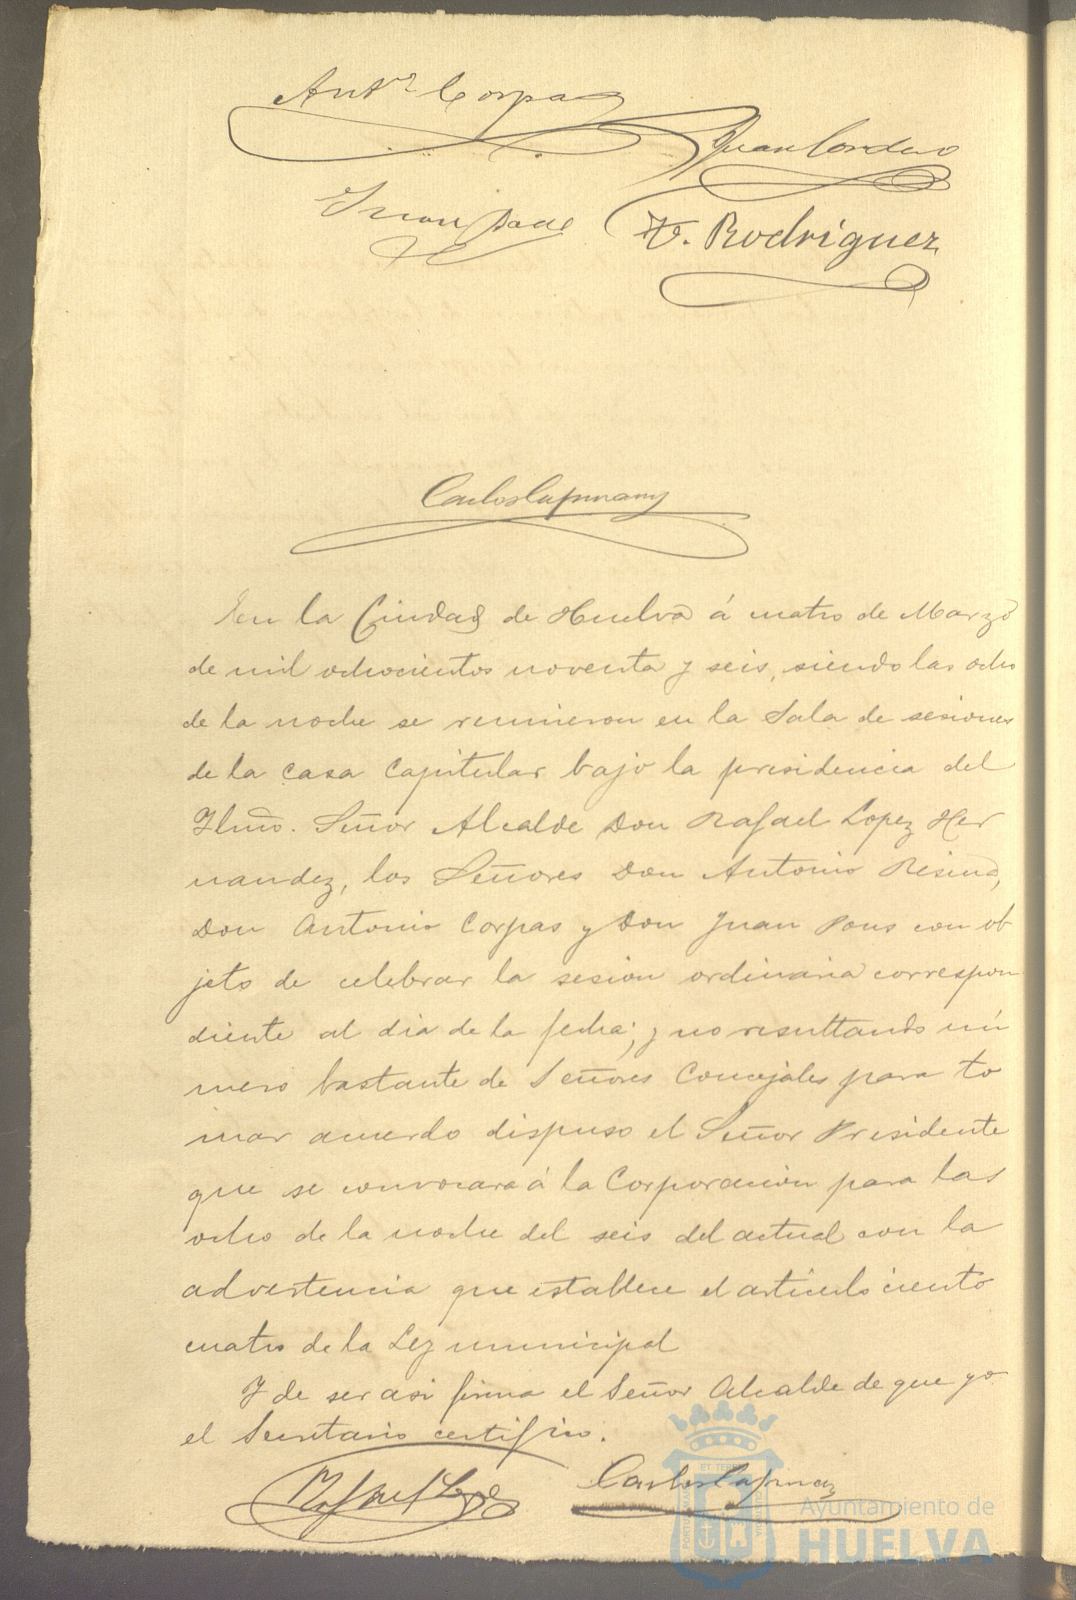 Antº Corpas
Juan Cordero
F. Rodriguez
Carlos Capmany
En la Ciudad de Huelva á cuatro de Marzo
de mil ochocientos noventa y seis, siendo las ocho
de la noche se reunieron en la Sala de sesiones
de la Casa Capitular bajo la presidencia del
Ilmo. Señor Alcalde Don Rafael Lopez Her
nandez, los Señores Don Antonio Resina,
Don Antonio Corpas y Don Juan Pons con ob
jeto de celebrar la sesion ordinaria correspon
diente al dia de la fecha; y no resultando nú
mero bastante de Señores Concejales para to
mar acuerdo dispuso el Señor Presidente
que se convocara á la Corporación para las
ocho de la noche del seis del actual con la
advertencia que establece el articulo ciento
cuatro de la Ley municipal
Y de ser asi firma el Señor Alcalde de que yo
el Secretario certifico.
Rafael Lopez
Carlos Capmany
Ayuntamiento de
HUELVA